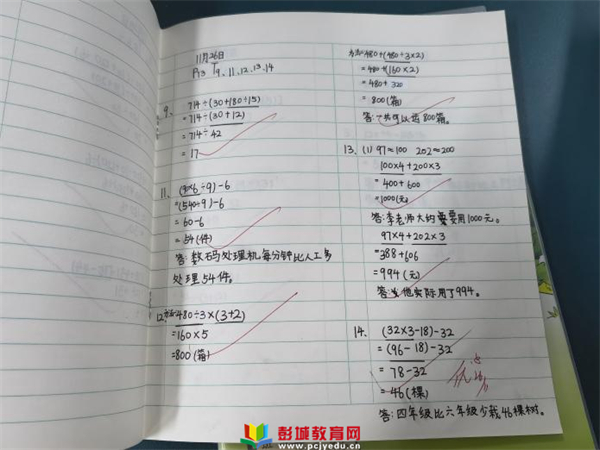 11月26日
P73 T9、11、12、13、14
9、
714÷(30+180÷15)
=714÷(30+12)
=714÷42
=17
11、(9×6÷9)-6
=(540÷9)-6
=60-6
=54(件)
答:数码处理机每分钟比人工多
处理54件。
12、方法一480÷3×(3+2)
=160×5
=800(箱)
方法二480+(480÷3×2)
=480+(160×2)
=480+320
=800(箱)
答:一共可以运800箱。
13、(1)97≈100 202≈200
100×4+200×3
=400+600
=1000(元)
答:李老师大约要用1000元。
97×4+202×3
=388+606
=994(元)
答:他实际用了994。
14、(32×3-18)-32
=(96-18)-32
=78-32
=46(棵)
答:四年级比六年级少栽46棵树。
彭城教育网
www.pcjyedu.cn